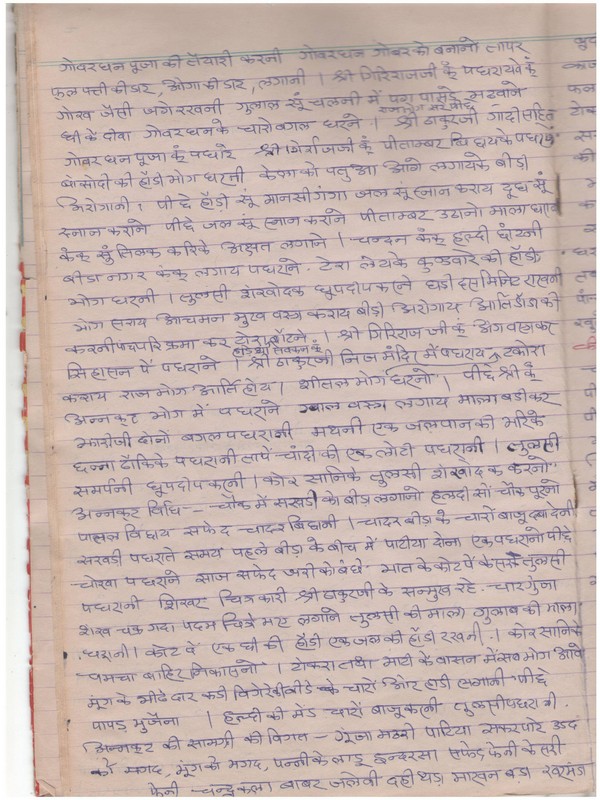 गोवरधन पूजा की तैयारी करनी गोवरधन गोबर को बनानो तापर
फुल पत्ती की डार, ओगा की डार, लगानी । श्री गिरिराजजी कूँ पधरायवे कूँ
गोख जैसी जगे रखनी गुलाल सूँ चलनी में
घी के दीवा गोवरधन के चारो बगल धरने । श्री ठाकुरजी गादी सहित
गोवरधन पूजा कूँ पधारे श्री गिर्राजजी कूँ पीताम्बर बिछायके पधारें
की हाँडी भोग धरनी को आगे लगायके बीडी
अरोगानी । पीछे हाँडी सूँ मानसी गंगा जल सूँ स्नान कराय दूध सूँ
स्नान कराने पीछे जल सूँ स्नान कराने पीताम्बर उढानो माला
कूँ तिलक करिके अक्षत लगाने । चन्दन कंकू हल्दी छांटनी
बीडा नगर कंकू लगाय पधराने. टेरा लेयके कुण्डवार की हाँडी
भोग धरनी । तुलसी शंखोदक धूपदीप करने घडी दस मिनिट राखनी
भोग सराय आचमन मुख वस्त्र कराय बीडी अरोगाय आर्ति की
करनी परिक्रमा कर बाँटने । श्री गिरिराज जी कूँ अंग वस्त्र कर
सिंहासन पे पधराने । श्री ठाकुरजी निज मंदिर में पधराय टकोरा
कराय राजभोग आर्ति होय । शीतल भोग धरनो । पीछे श्री कूँ
अन्नकूट भोग में पधराने वस्त्र लगाय माला बडी कर
झारीजी दोनों बगल पधरानी मथनी एक जलपान की भरिके
छन्ना ढाँकिके पधरानी तापें चाँदी की एक लोटी पधरानी । तुलसी
समर्पनी धूपदीप करनी । कोर सानिके तुलसी शंखोदक करनो
अन्नकूट विधि -- चौक में सखडी को बीडा लगानो हलदी सों चौक पूरनो
बिछाय सफेद चादर बिछानी । चादर बीडा के चारों बाजू दबा देनी
सखडी पधराते समय पहले बीडा के बीच में पाटीया दोना एक पधरानो पीछे
चोखा पधराने साज सफेद जरी को बंधे भात के कोट पें केसर तुलसी
पधरानी शिखर चित्रकारी श्री ठाकुरजी के सन्मुख रहे. चार गुंजा
शंख चक्र गदा पदम लगाने तुलसी की माला गुलाब की माला
धरानी । कोट पें एक घी की हाँडी एक जल की हाँडी रखनी । कोर सानिके
चमचा बाहिर निकासनो । टोकरा तथा माटी के वासन में सब भोग आवे
मूंग के मीठे दार कढी विगेरे बीडे के चारों ओर हांडी लगानी पीछे
पापड भुजेना । हल्दी की मेंड चारों बाजू करनी तुलसी पधरानी.
अन्नकूट की सामग्री की विगत - गूंजा मठरी पाटिया सकरपारे उडद
को मगद, मूंग को मगद, के लाडू इन्दरसा सफेद फेनी केसरी
फेनी चन्द्रकला बाबर जलेबी दहीथडा माखन बडा खरमंडा